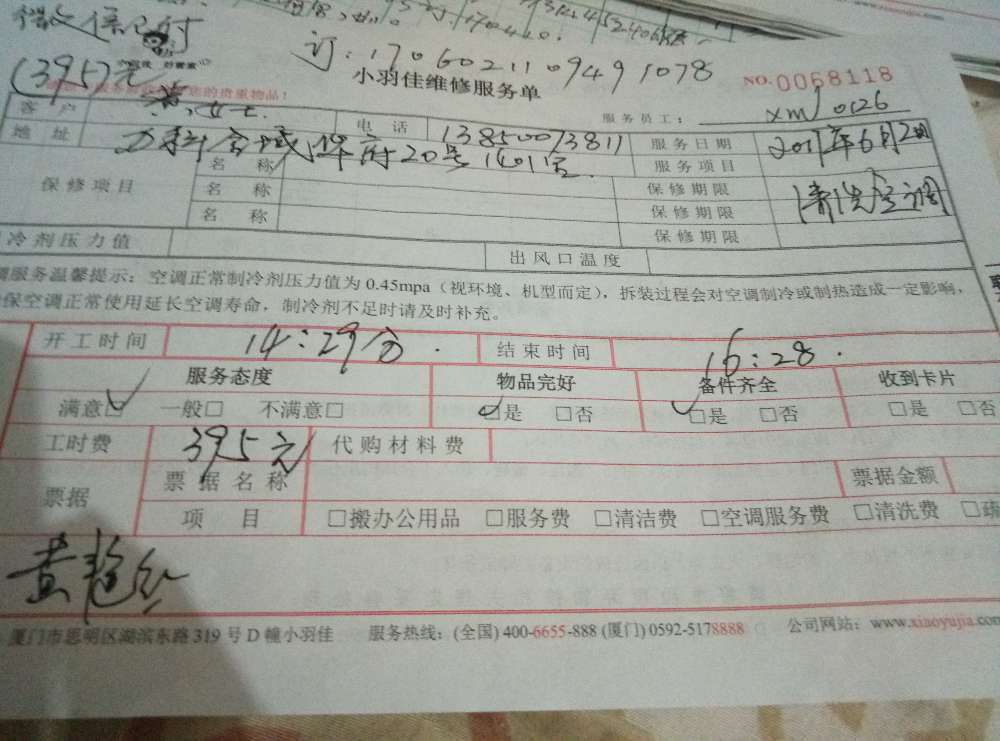 订:1706021109491078
(395)元
小羽佳维修服务单
NO.0058118
的贵重物品!
服务员工: xmj0126
客户 女士 电话 13850073811 服务日期 2017年6月2日
地址 万科金域华府20号1401室 服务项目 清洗空调
保修项目 名称 保修期限
名称 保修期限
名称 保修期限
冷剂压力值 出风口温度
服务温馨提示:空调正常制冷剂压力值为0.45mpa(视环境、机型而定),拆装过程会对空调制冷或制热造成一定影响,
保空调正常使用延长空调寿命,制冷剂不足时请及时补充。
开工时间 14:29分. 结束时间 16:28.
服务态度 物品完好 备件齐全 收到卡片
满意☑ 一般□ 不满意□ ☑是 □否 ☑是 □否 □是 □否
工时费 395元 代购材料费
票据 票据名称 票据金额
项目 □搬办公用品 □服务费 □清洁费 □空调服务费 □清洗费 □疏
厦门市思明区湖滨东路319号D幢小羽佳 服务热线:(全国)400-6655-888(厦门)0592-5178888 公司网站:www.xiaoyujia.com